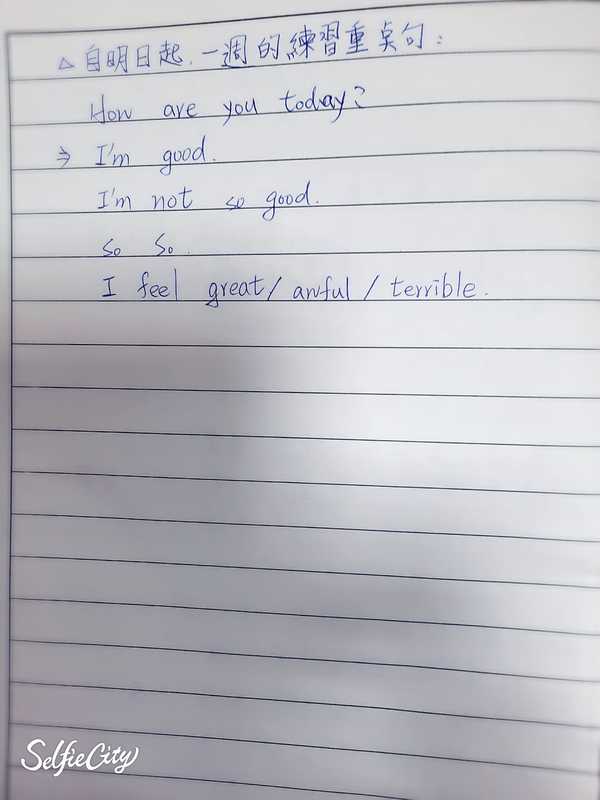 △自明日起.一週的練習重點句：
How are you today?
⇒ I'm good.
I'm not so good.
so so.
I feel great/awful/terrible.
SelfieCity